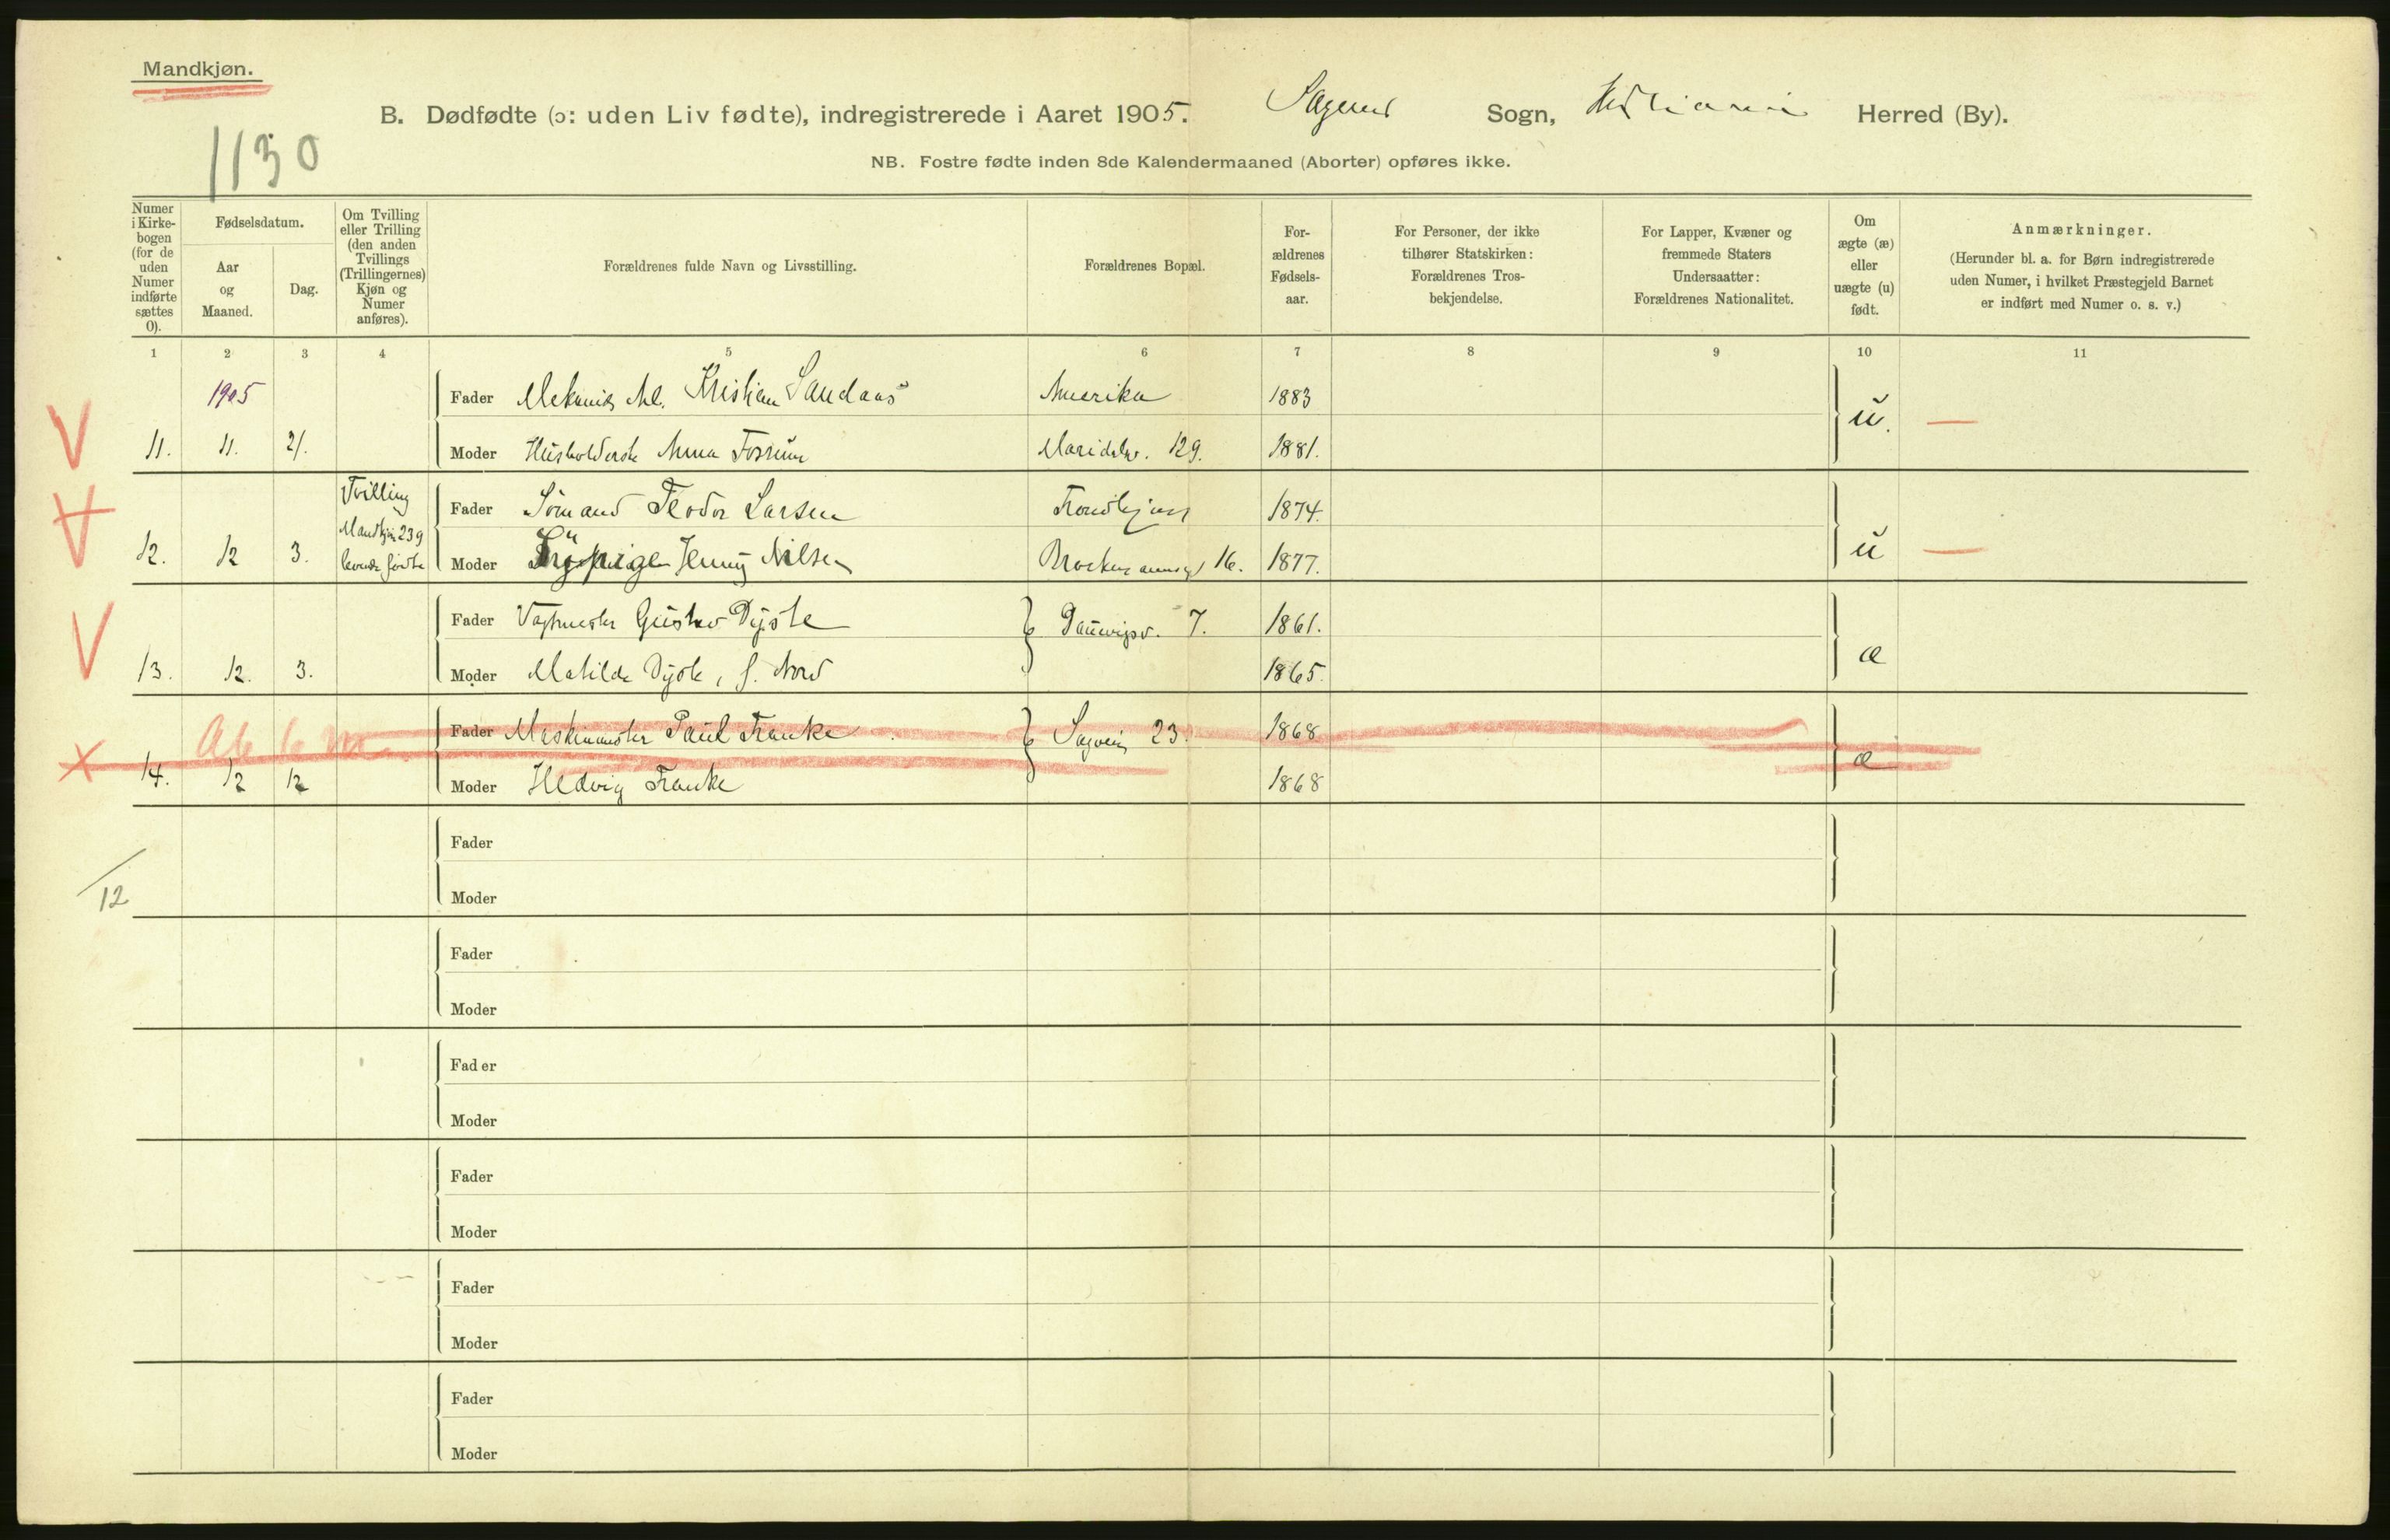 Mandkjøn.
B. Dødfødte (ɔ: uden Liv fødte), indregistrerede i Aaret 1905. Sagenes Sogn, Kristiania Herred (By).
1130
NB. Fostre fødte inden 8de Kalendermaaned (Aborter) opføres ikke.
Numer i Kirke-bogen (for de uden Numer indførte sættes 0).
Fødselsdatum.
Aar og Maaned.
Dag.
Om Tvilling eller Trilling (den anden Tvillings (Trillingernes) Kjøn og Numer anføres).
Forældrenes fulde Navn og Livsstilling.
Forældrenes Bopæl.
For-ældrenes Fødsels-aar.
For Personer, der ikke tilhører Statskirken: Forældrenes Tros-bekjendelse.
For Lapper, Kvæner og fremmede Staters Undersaatter: Forældrenes Nationalitet.
Om ægte (æ) eller uægte (u) født.
Anmærkninger.
(Herunder bl. a. for Børn indregistrerede uden Numer, i hvilket Præstegjeld Barnet er indført med Numer o. s. v.)
1 2 3 4 5 6 7 8 9 10 11
1905 Fader Kristian Sandaas Amerika 1883 u. —
11. 11. 21. Moder Husholderske Anna Fossum Maridalsv. 129. 1881.
Tvilling Fader Sømand Teodor Larsen Trondhjem 1874.
Mandkjøn 239
12. 12 3. levende fødte Moder Sypige Jenny Nilsen 16. 1877. u —
Fader Vagtmester Gustav Dyste 7. 1861.
13. 12. 3. Moder Matilde Dyste, f. Nord 1865. æ
Fader Maskinmester Paul Franke Sagvein 23. 1868
14. 12 12 Moder Hedvig Franke 1868 æ
Fader
12 Moder
Fader
Moder
Fader
Moder
Fader
Moder
Fader
Moder
Fader
Moder